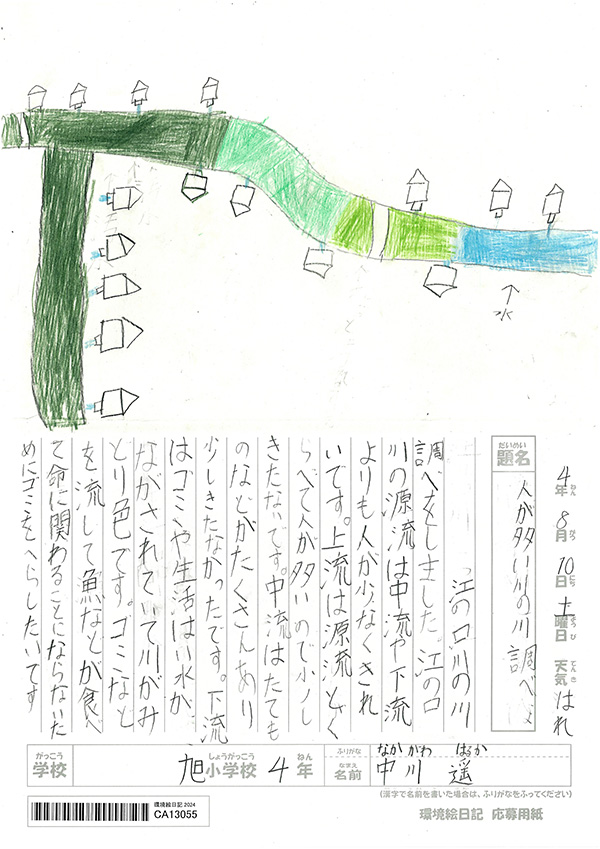 水
4年ねん 8月がつ 10日にち 土曜日ようび 天気てんき はれ
だいめい
題名 人が多い川の川調べ
江の口川の川
調べをしました。江の口
川の源流は中流や下流
よりも人が少なくきれ
いです。上流は源流とく
らべて人が多いので少し
きたないです。中流はたても
のなどがたくさんあり
少しきたなかったです。下流
はゴミや生活はい水が
ながされていて川がみ
どり色です。ゴミなど
を流して魚などが食べ
て命に関わることにならないた
めにゴミをへらしたいです
がっこう しょうがっこう ねん
学校 旭小学校 4年
ふりがな なかがわ はるか
なまえ
名前 中川 遥
(漢字で名前を書いた場合は、ふりがなをふってください)
環境絵日記 応募用紙
環境絵日記 2024
CA13055